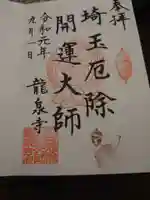 奉拝
埼玉厄除
開運大師
龍泉寺
令和元年
九月一日